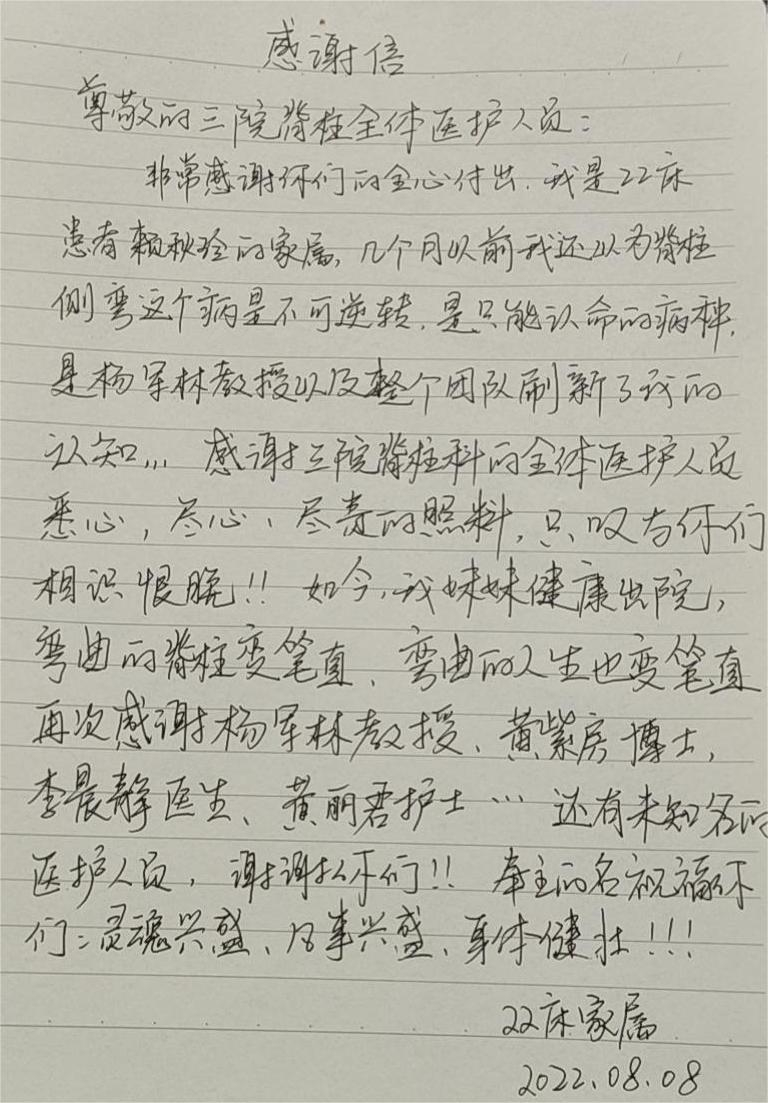 感谢信
尊敬的三院脊柱全体医护人员:
非常感谢你们的全心付出.我是22床
患者赖秋玲的家属,几个月以前我还以为脊柱
侧弯这个病是不可逆转.是只能认命的病种.
是杨军林教授以及整个团队刷新了我的
认知... 感谢三院脊柱科的全体医护人员
悉心,尽心、尽责的照料,只叹与你们
相识恨晚!! 如今,我妹妹健康出院,
弯曲的脊柱变笔直、弯曲的人生也变笔直
再次感谢杨军林教授、黄紫房博士,
李晨静医生、黄丽君护士…还有未知名的
医护人员,谢谢你们!! 奉主的名祝福你
们:灵魂兴盛、凡事兴盛、身体健壮!!!
22床家属
2022.08.08